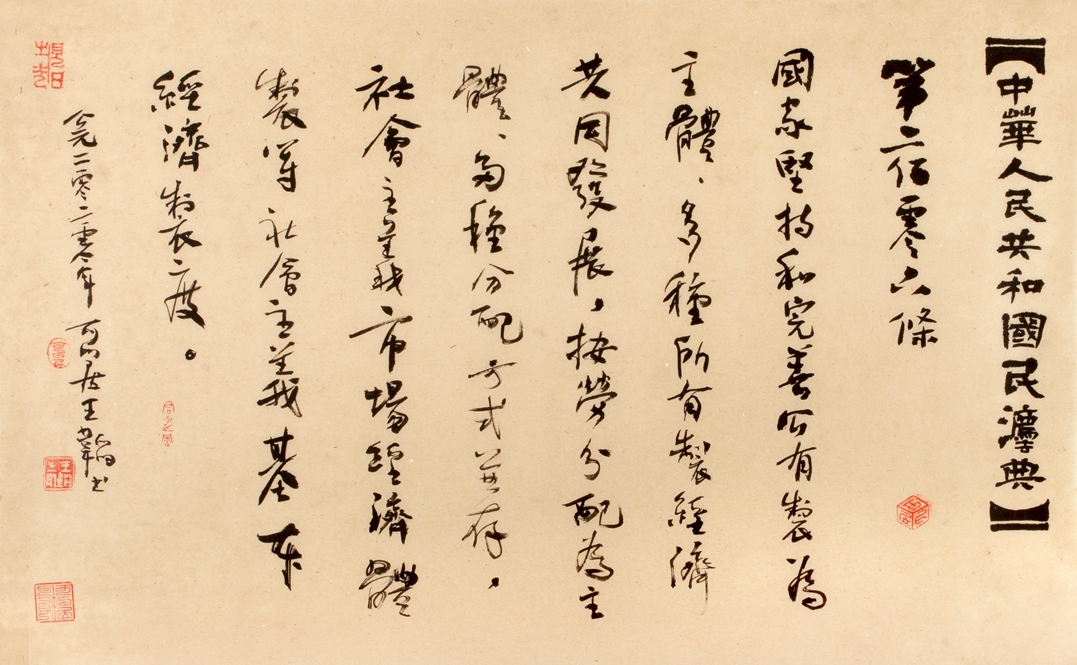 【中華人民共和國民灋典】
第二佰零六條
國家堅持和完善公有製為
主體、多種所有製經濟
共同發展，按勞分配為主
體、多種分配方式並存，
社會主義市場經濟體
製等社會主義基本
經濟製度。
公元二零二零年 居王書